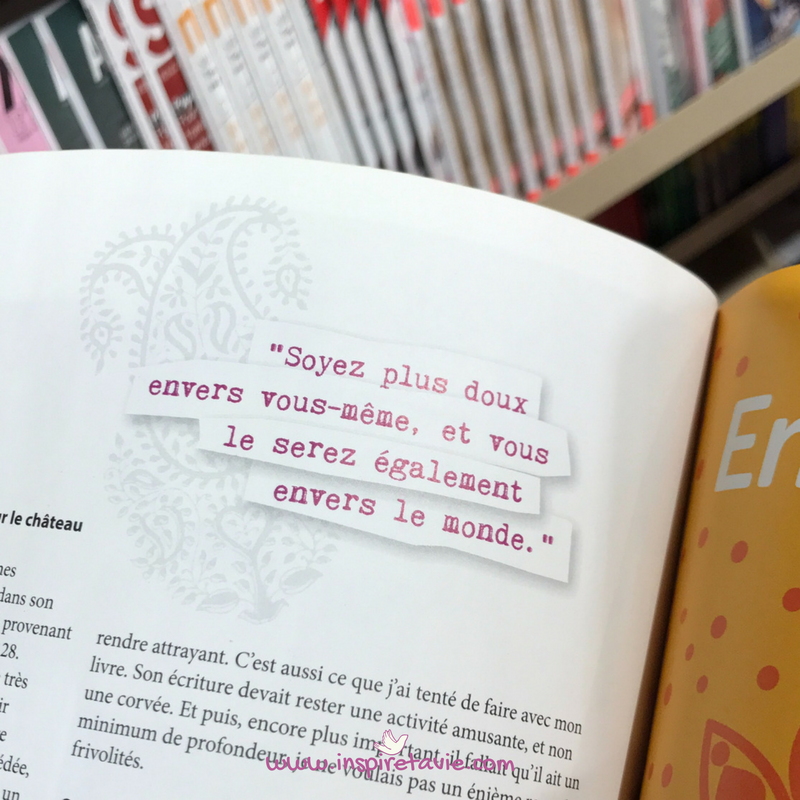 "Soyez plus doux
envers vous-même, et vous
le serez également
envers le monde."
r le château
nes
dans son
provenant
28.
très
ir
e
édée,
un
rendre attrayant. C'est aussi ce que j'ai tenté de faire avec mon
livre. Son écriture devait rester une activité amusante, et non
une corvée. Et puis, encore plus important, il fallait qu'il ait un
minimum de profondeur, je ne voulais pas un énième
frivolités.
En
www.inspiretavie.com